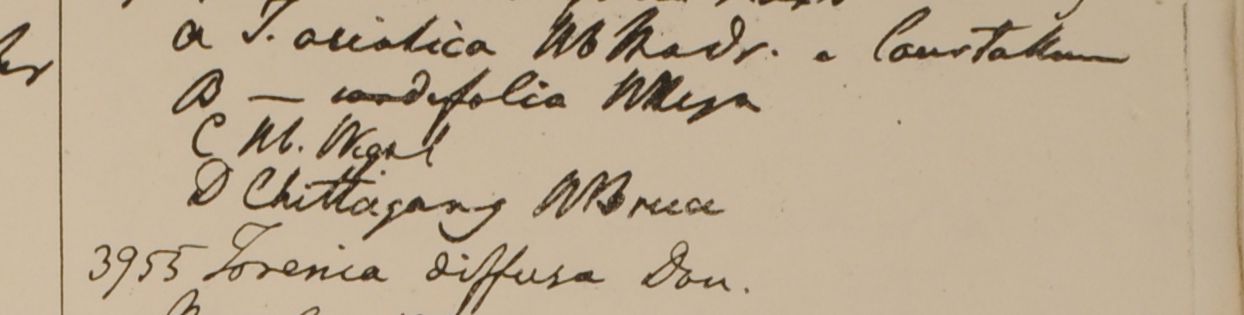 a T. asiatica Hb Madr. e Courtallum
B — cordifolia HHeyn
C Hb. Wight
D Chittagong WBruce
3955 Torenia diffusa Don.